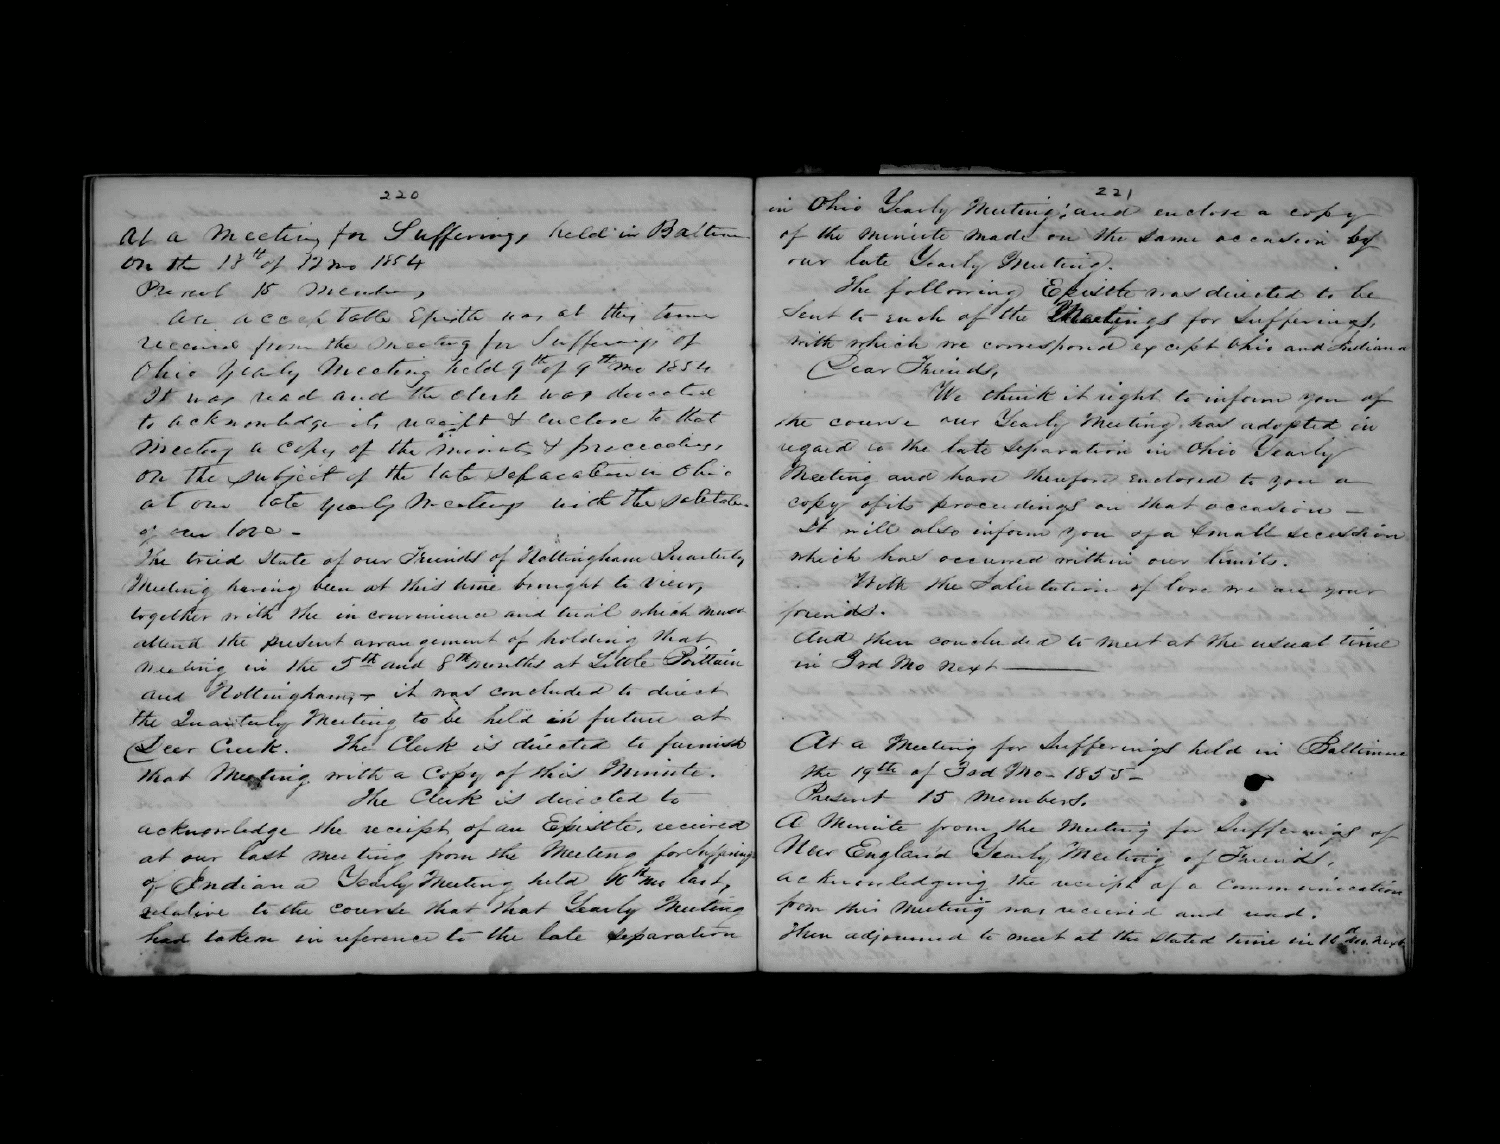 220
At a Meeting for Sufferings held in Baltimore
on the 18th of 12 mo 1854
Present 15 Members
An acceptable Epistle was at this time
received from the meeting for Sufferings of
Ohio Yearly Meeting held 9th of 9th mo 1854
It was read and the clerk was directed
to acknowledge its receipt & enclose to that
Meeting a copy of the minutes & proceedings
on the subject of the late separation in Ohio
at our late yearly Meeting with the salutation
of our love -
The tried State of our Friends of Nottingham Quarterly
Meeting having been at this time brought to view,
together with the inconvenience and trial which must
attend the present arrangement of holding that
meeting in the 5th and 8th months at Little Brittain
and Nottingham, - it was concluded to direct
the Quarterly Meeting to be held in future at
Deer Creek. The Clerk is directed to furnish
that Meeting with a Copy of this Minute.
The Clerk is directed to
acknowledge the receipt of an Epistle, received
at our last meeting from the Meeting for Sufferings
of Indiana Yearly Meeting held 10th mo last,
relative to the course that that Yearly Meeting
had taken in reference to the late separation
221
in Ohio Yearly Meeting; and enclose a copy
of the minute made on the same occasion by
our late Yearly Meeting.
The following Epistle was directed to be
sent to each of the Meetings for Sufferings,
with which we correspond except Ohio and Indiana
Dear Friends,
We think it right to inform you of
the course our Yearly Meeting has adopted in
regard to the late separation in Ohio Yearly
Meeting and have therefore enclosed to you a
copy of its proceedings on that occasion -
It will also inform you of a small secession
which has occurred within our limits.
With the Salutation of love we are your
friends.
And then concluded to meet at the usual time
in 3rd Mo next
At a Meeting for Sufferings held in Baltimore
the 19th of 3rd Mo - 1855 -
Present 15 members.
A Minute from the Meeting for Sufferings of
New England Yearly Meeting of Friends,
acknowledging the receipt of a Communication
from this Meeting was received and read.
Then adjourned to meet at the stated time in next